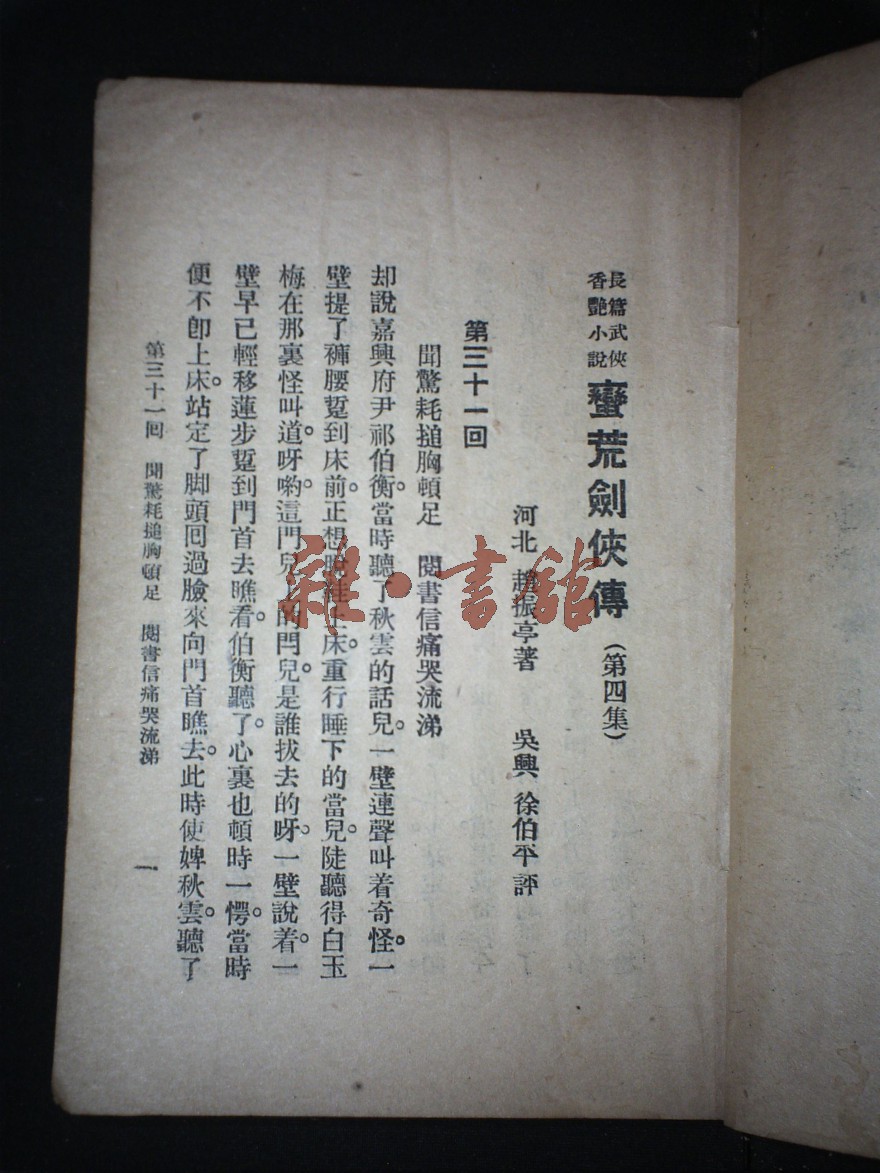 長篇武俠
香艷小說
蠻荒劍俠傳（第四集）
河北 趙振亭著 吳興 徐伯平評
第三十一回
聞驚耗搥胸頓足 閱書信痛哭流涕
却說嘉興府尹祁伯衡。當時聽了秋雲的話兒。一壁連聲叫着奇怪。一
壁提了褲腰踅到床前。正想脫鞋上床。重行睡下的當兒。陡聽得白玉
梅在那裏怪叫道。呀喲。這門兒上的閂兒。是誰拔去的呀。一壁說着。一
壁早已輕移蓮步踅到門首去瞧看。伯衡聽了。心裏也頓時一愕。當時
便不卽上床。站定了脚頭回過臉來向門首瞧去。此時使婢秋雲。聽了
第三十一回 聞驚耗搥胸頓足 閱書信痛哭流涕
一
雜·書館